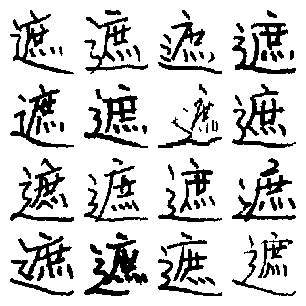 遮遮遮遮
遮遮遮遮
遮遮遮遮
遮遮遮遮